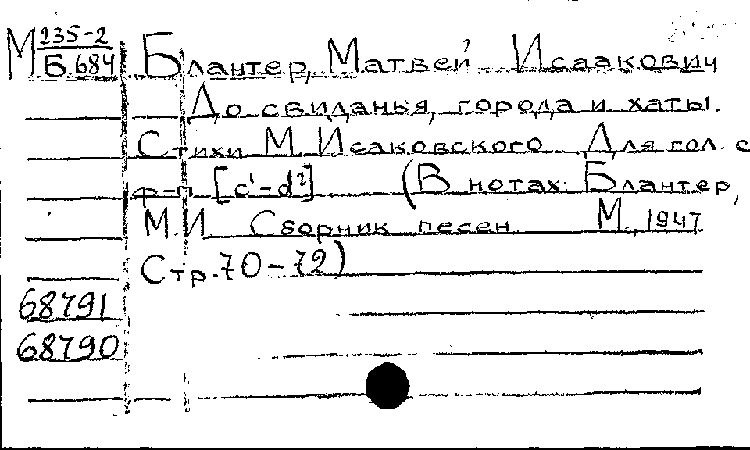 М 235-2
Б 684
Блантер, Матвей Исаакович
До свиданья, города и хаты.
Стихи М. Исаковского. Для гол. с
ф-п [c¹-d²] (В нотах: Блантер,
М.И. Сборник песен М., 1947
Стр. 70-72)
68791
68790